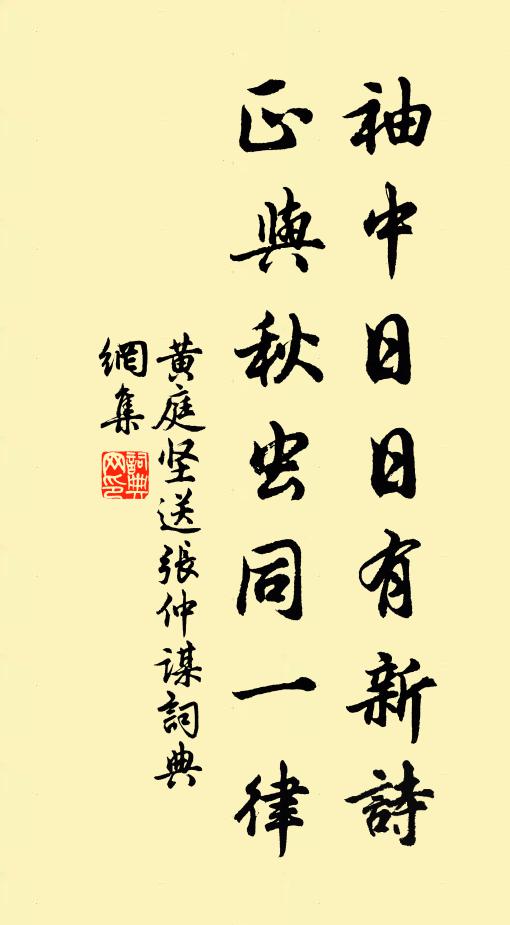 袖中日日有新詩
正與秋虫同一律
黄庭坚送張仲谋詞典
網集
詞典网印